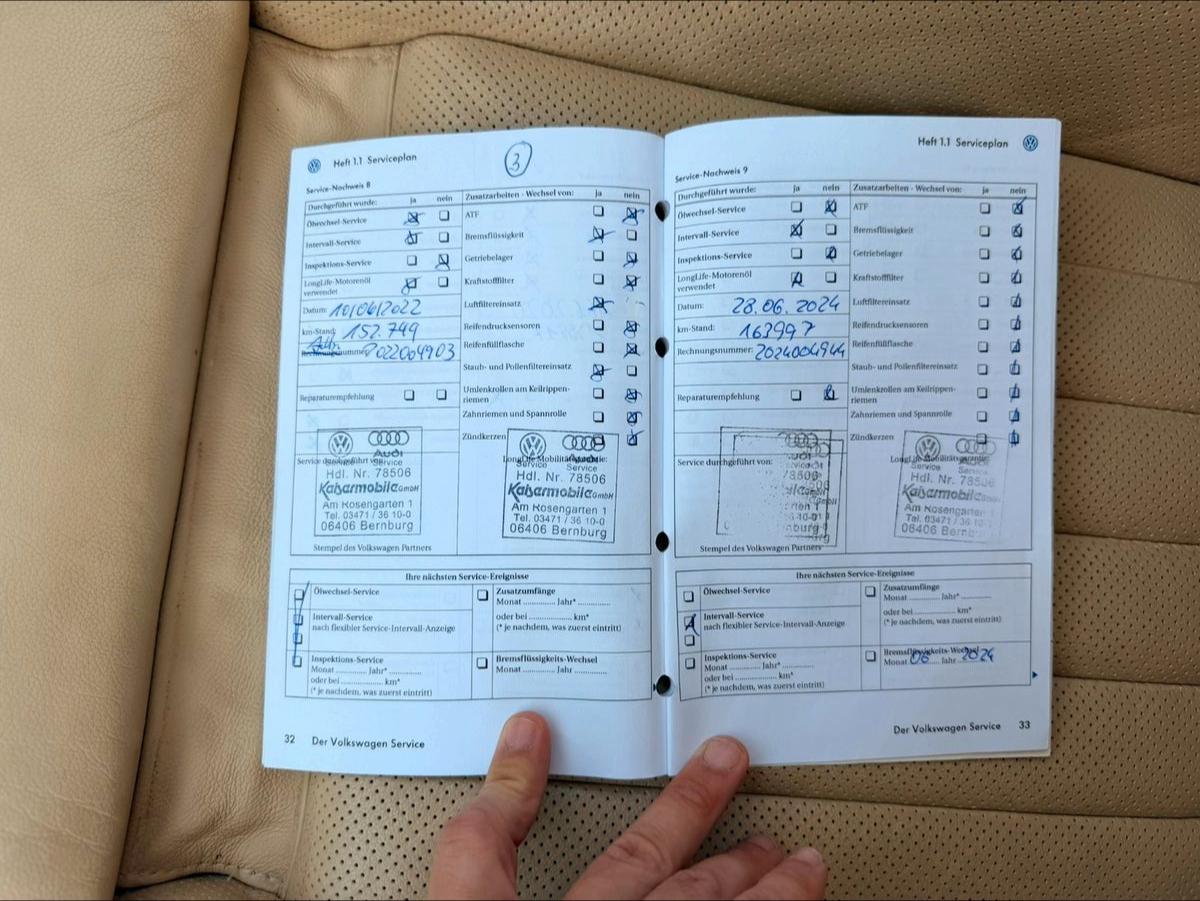 Heft 1.1 Serviceplan
3
Service-Nachweis 8
Durchgeführt wurde: ja nein
Ölwechsel-Service
Intervall-Service
Inspektions-Service
LongLife-Motorenöl
verwendet
Datum: 10/06/2022
km-Stand: 152.749
Reparaturempfehlung
Service durchgeführt von:
Audi
Service Service
Hdl. Nr. 78506
Kaisarmobile GmbH
Am Rosengarten 1
Tel. 03471 / 36 10-0
06406 Bernburg
Stempel des Volkswagen Partners
Zusatzarbeiten - Wechsel von: ja nein
ATF
Bremsflüssigkeit
Getriebelager
Kraftstofffilter
Luftfiltereinsatz
Reifendrucksensoren
Reifenfüllflasche
Staub- und Pollenfiltereinsatz
Umlenkrollen am Keilrippen-
riemen
Zahnriemen und Spannrolle
Zündkerzen
Service Service
Hdl. Nr. 78506
Kaisarmobile GmbH
Am Rosengarten 1
Tel. 03471 / 36 10-0
06406 Bernburg
Ihre nächsten Service-Ereignisse
Ölwechsel-Service
Intervall-Service
nach flexibler Service-Intervall-Anzeige
Inspektions-Service
Monat ............ Jahr* ............
oder bei ............ km*
(* je nachdem, was zuerst eintritt)
Zusatzumfänge
Monat ............ Jahr* ............
oder bei ............ km*
(* je nachdem, was zuerst eintritt)
Bremsflüssigkeits-Wechsel
Monat ............ Jahr ............
32 Der Volkswagen Service
Heft 1.1 Serviceplan
Service-Nachweis 9
Durchgeführt wurde: ja nein
Ölwechsel-Service
Intervall-Service
Inspektions-Service
LongLife-Motorenöl
verwendet
Datum: 28.06.2024
km-Stand: 163997
Rechnungsnummer: 2024004944
Reparaturempfehlung
Service durchgeführt von:
Stempel des Volkswagen Partners
Zusatzarbeiten - Wechsel von: ja nein
ATF
Bremsflüssigkeit
Getriebelager
Kraftstofffilter
Luftfiltereinsatz
Reifendrucksensoren
Reifenfüllflasche
Staub- und Pollenfiltereinsatz
Umlenkrollen am Keilrippen-
riemen
Zahnriemen und Spannrolle
Zündkerzen
Service Service
Hdl. Nr. 78506
Kaisarmobile
Am Rosengarten 1
Tel. 03471 / 36 10
06406
Ihre nächsten Service-Ereignisse
Ölwechsel-Service
Intervall-Service
nach flexibler Service-Intervall-Anzeige
Inspektions-Service
Monat ............ Jahr* ............
oder bei ............ km*
(* je nachdem, was zuerst eintritt)
Zusatzumfänge
Monat ............ Jahr* ............
oder bei ............ km*
(* je nachdem, was zuerst eintritt)
Bremsflüssigkeits-Wechsel
Monat 06 Jahr 2024
Der Volkswagen Service 33